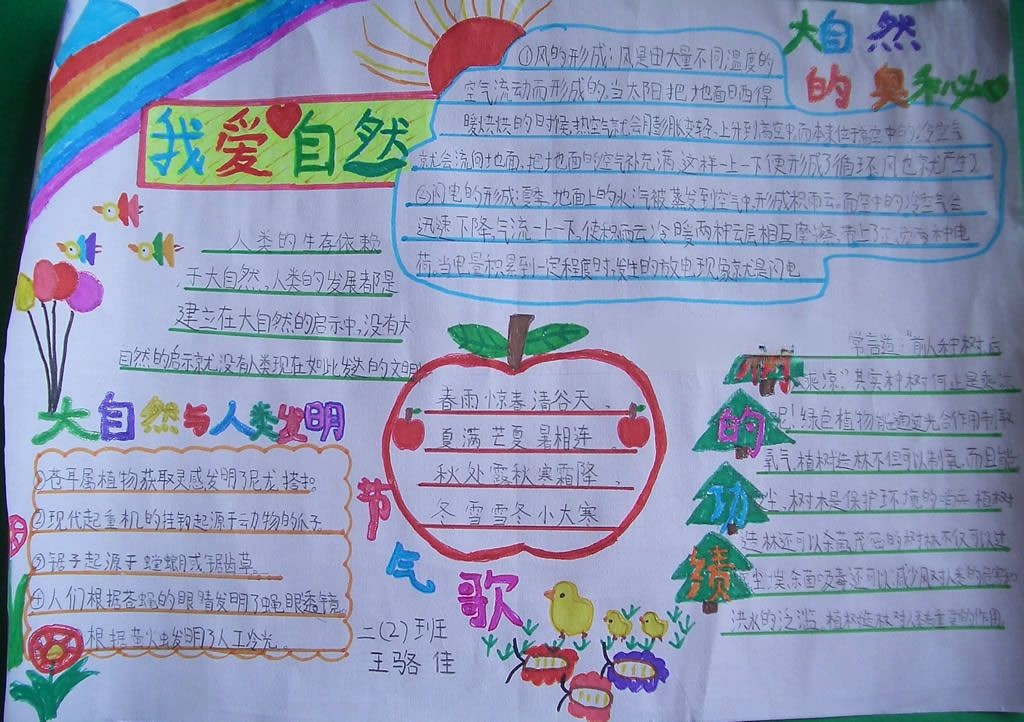 我爱自然
人类的生存依赖
于大自然,人类的发展都是
建立在大自然的启示中,没有大
自然的启示就没有人类现在如此发达的文明
大自然
的奥秘
①风的形成:风是由大量不同温度的
空气流动而形成的,当太阳把地面晒得
暖烘烘的时候,热空气就会膨胀变轻,上升到高空中,而本来位于高空中的冷空气
就会流向地面,把地面的空气补充满,这样一上一下便形成了循环,风也就产生了
②闪电的形成:夏季,地面上的水汽被蒸发到空气中,形成积雨云,而空中的冷空气会
迅速下降,气流一上一下,使积雨云冷暖两种云层相互摩擦,带上了正负两种电
荷,当电量积累到一定程度时,发生的放电现象就是闪电
大自然与人类发明
①苍耳属植物获取灵感发明了尼龙搭扣。
②现代起重机的挂钩起源于动物的爪子
③锯子起源于螳螂或锯齿草。
④人们根据苍蝇的眼睛发明了蝇眼透镜
根据萤火虫发明了人工冷光。
春雨惊春清谷天、
夏满芒夏暑相连
秋处露秋寒霜降、
冬雪雪冬小大寒
节气歌
二(2)班
王骆佳
树的功绩
常言道:"前人种树后
乘凉."其实种树何止是乘凉
呢!绿色植物能通过光合作用制取
氧气,植树造林不但可以制氧,而且能
尘,树木是保护环境的 植树
造林还可以杀菌,茂密的树林不仅可以过
尘,杀菌 还可以减少风对人类的危害和
洪水的泛滥,植树造林对人类 的作用